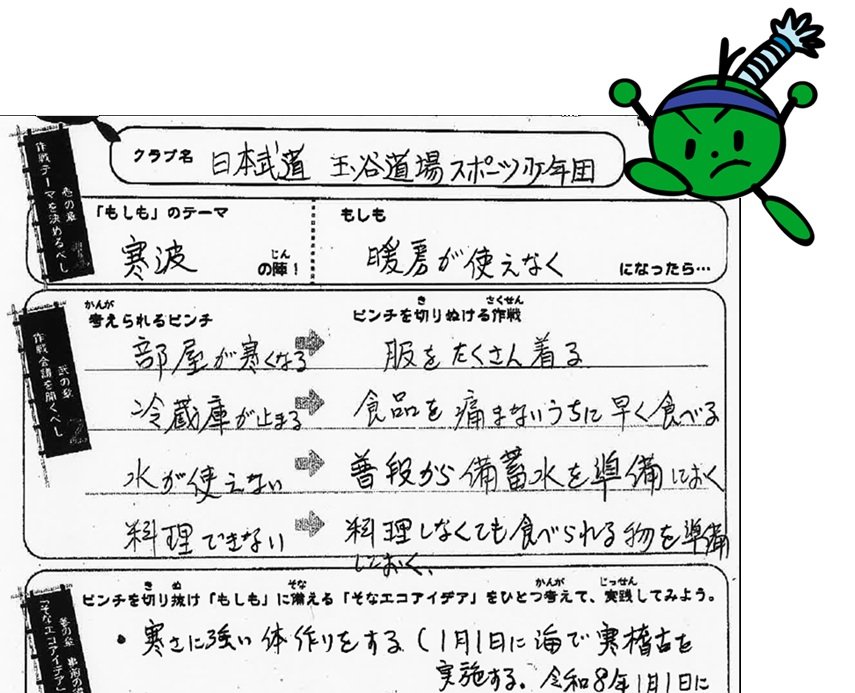 クラブ名 日本武道 玉谷道場スポーツ少年団
壱の巻
作戦テーマを決めるべし
「もしも」のテーマ
寒波 の陣！
じん
もしも
暖房が使えなく になったら…
弐の巻
作戦会議を開くべし
かんが
考えられるピンチ
き さくせん
ピンチを切りぬける作戦
部屋が寒くなる ➡ 服をたくさん着る
冷蔵庫が止まる ➡ 食品を痛まないうちに早く食べる
水が使えない ➡ 普段から備蓄水を準備しておく
料理できない ➡ 料理しなくても食べられる物を準備
しておく、
「そなエコアイデア」
き ぬ そな かんが じっせん
ピンチを切り抜け「もしも」に備える「そなエコアイデア」をひとつ考えて、実践してみよう。
・寒さに強い体作りをする（1月1日に海で寒稽古を
実施する。令和8年1月1日に